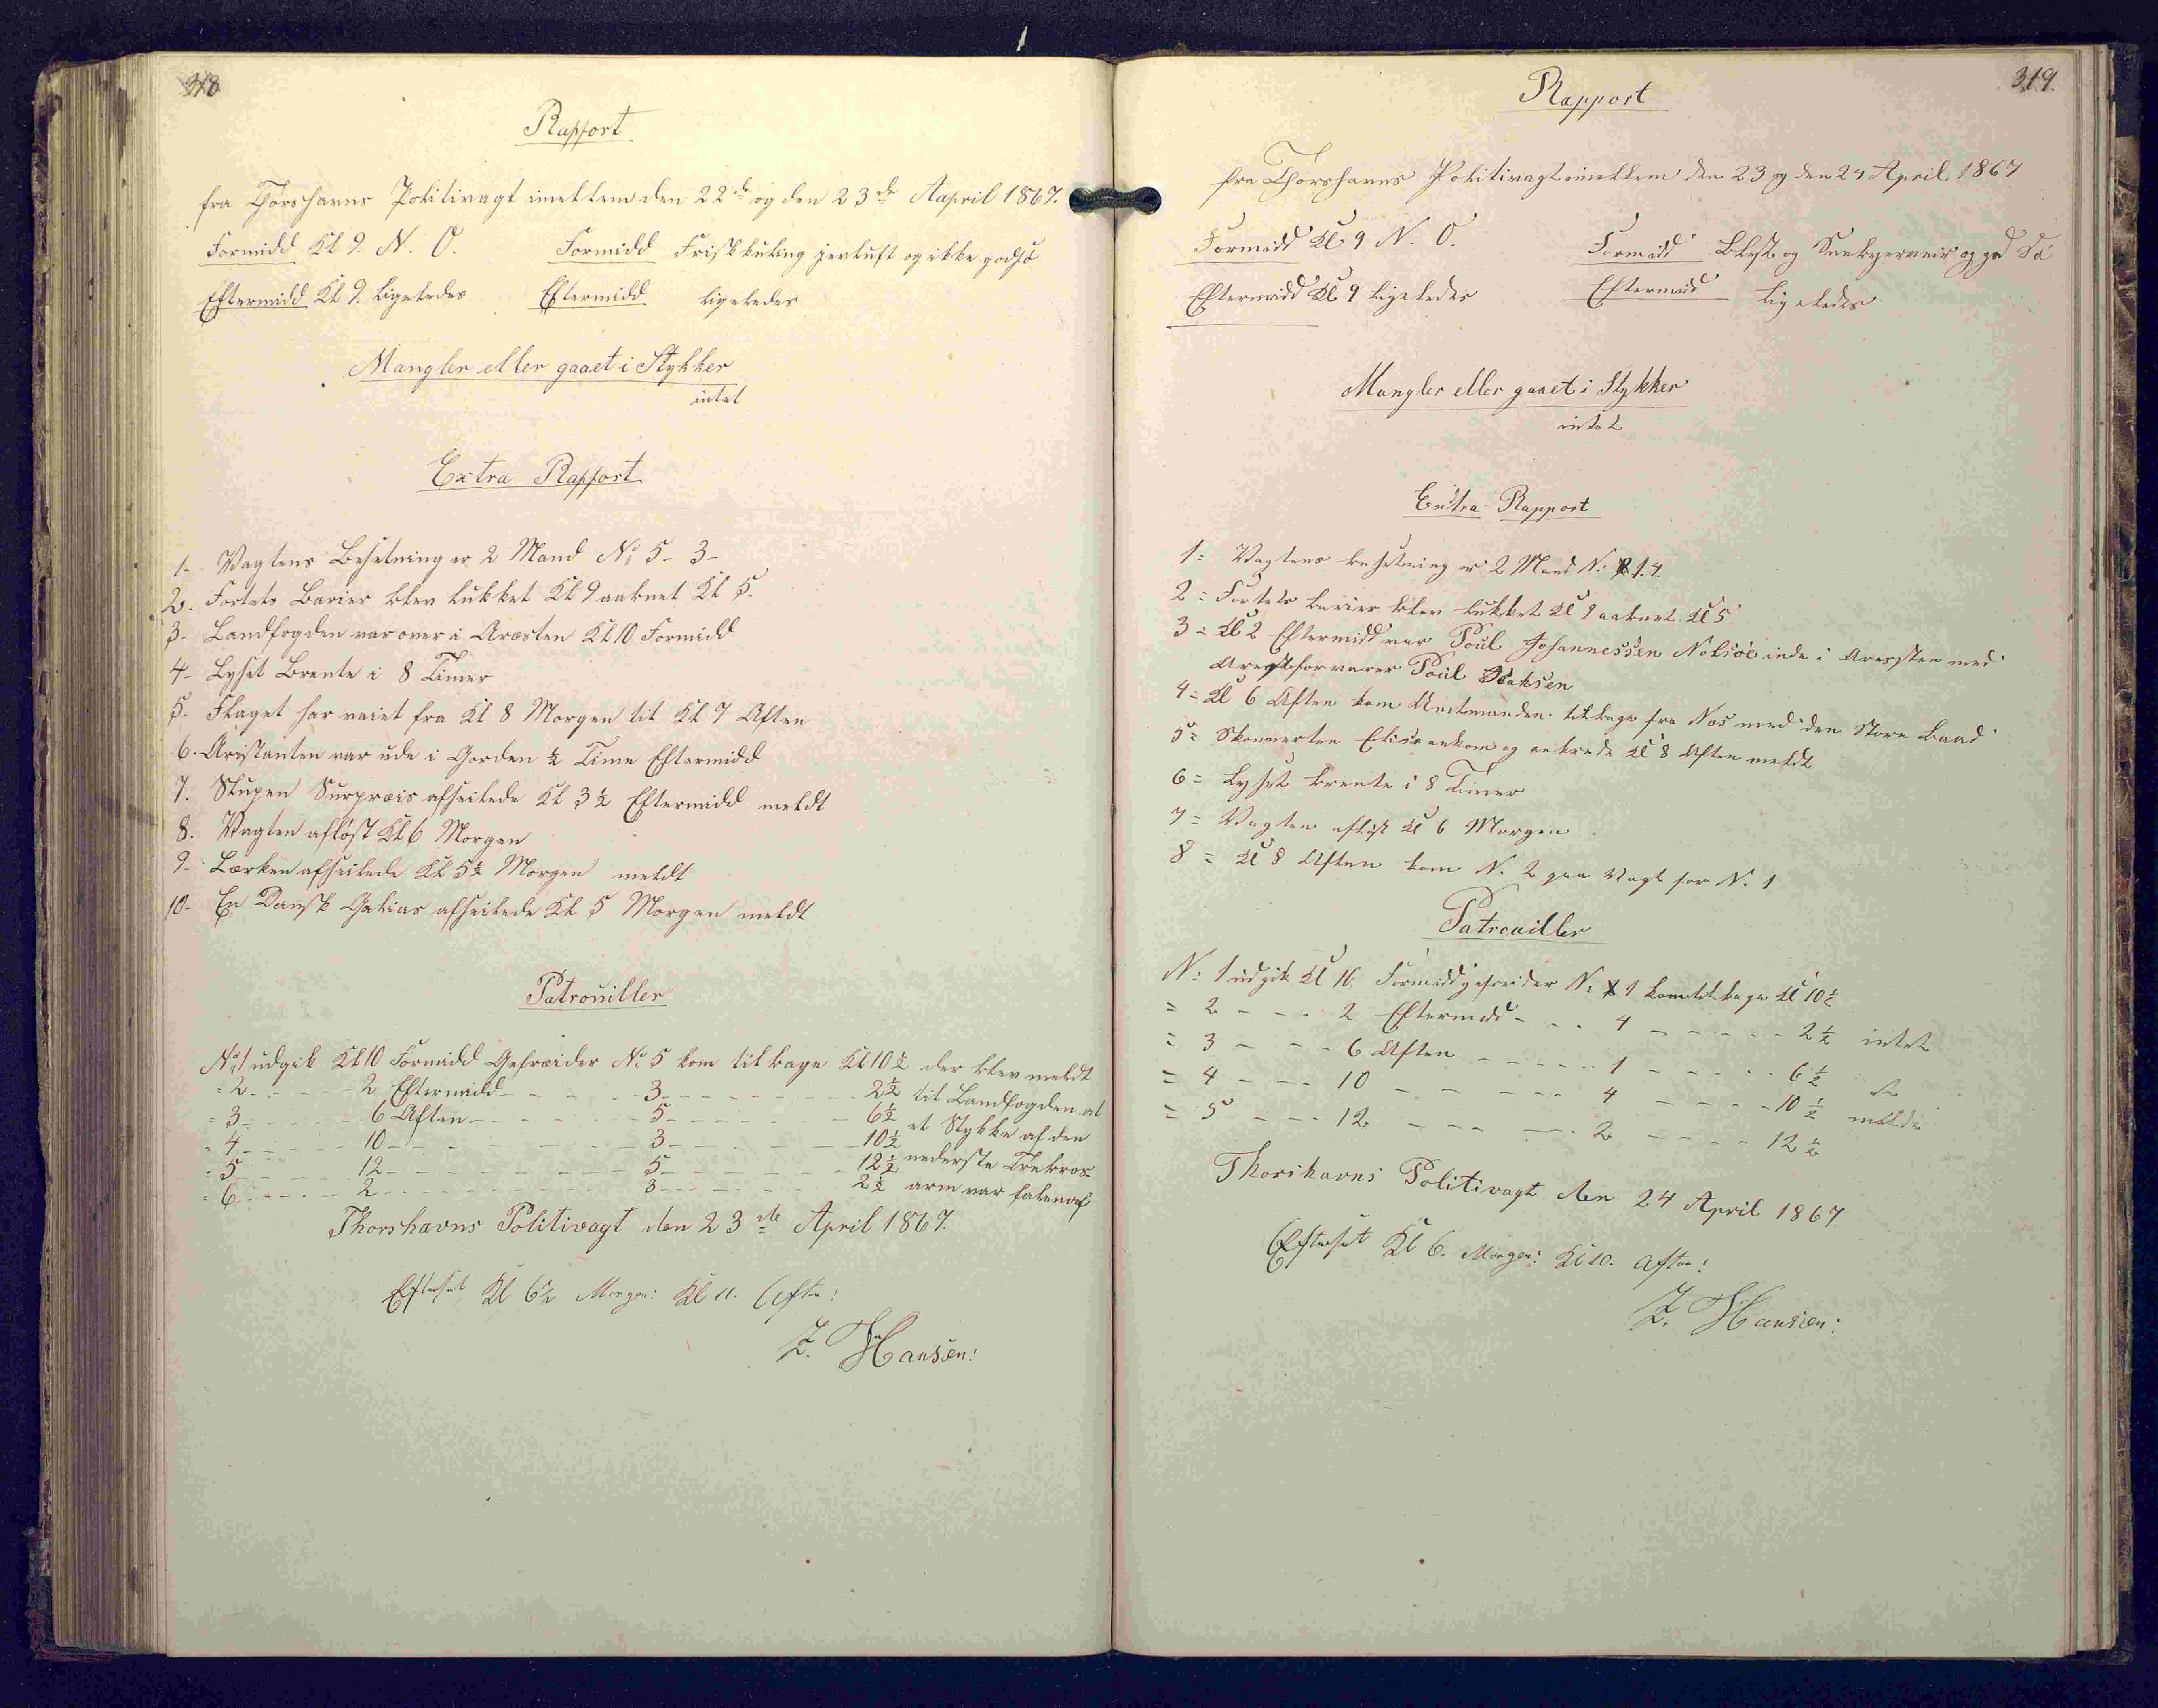 318
Rapport
fra Thorshavns Politivagt imellem den 22de og den 23de Aapril 1867.
Formidd Kl 9. N. O. Formidd Frisk kuling jevluft og ikke godsö
Eftermidd Kl 9. ligeledes Eftermidd ligeledes
Mangler eller gaaet i Stykker
intet
Extra Rapport
1- Vagtens Besetning er 2 Mand No 5- 3-
2- Fortets Barier blev lukket Kl 9 aabnet Kl 5.
3- Landfogden var over i Aræsten Kl 10 Formidd
4- Lyset Brente i 8 Timer
5- Flaget har vaiet fra Kl 8 Morgen til Kl 7 Aften
6. Aristanten var ude i Gorden ½ Time Eftermidd
7. Slupen Surpræis afseilede Kl 3½ Eftermidd meldt
8. Vagten aflöst Kl 6 Morgen
9- Lærken afseilede Kl 5½ Morgen meldt
10- En Dansk Galias afseilede Kl 5 Morgen meldt
Patrouiller
No 1 udgik Kl 10 Formidd Gefreider No 5 kom tilbage Kl 10½ der blev meldt
- 2 - - - 2 Eftermidd - - - 3 - - - 2½ til Landfogden at
- 3 - - - 6 Aften - - - 5 - - - 6½ et Stykke af den
- 4 - - - 10 - - - 3 - - - 10½ nederste Trekros
- 5 - - - 12 - - - 5 - - - 12½ arm var falen af
- 6 - - - 2 - - - 3 - - - 2½
Thorshavns Politivagt den 23de April 1867.
Efterset Kl 6½ Morgen: Kl 11. Aften:
Z. Hansen:
319.
Rapport
fra Thorshavns Politivagt imellem den 23 og den 24 April 1867
Formidd Kl 9 N. O. Formidd Blest og Sneebyerveir og god Sö
Eftermidd Kl 9 ligeledes Eftermidd ligeledes
Mangler eller gaaet i Stykker
intet
Extra Rapport
1= Vagtens besetning er 2 Mand N: 1. 4.
2= Fortets barier blev lukket Kl 9 aabnet Kl 5
3= Kl 2 Eftermidd var Poul Johannessen Nolsöe inde i Aressten med
Arestforvarer Poul Isaksen
4= Kl 6 Aften kom Amtmanden tilbage fra Næs med den Store baad
5= Skonnerten Elisa ankom og ankrede Kl 8 Aften meldt
6= Lyset brente i 8 Timer
7= Vagten aflöst Kl 6 Morgen
8= Kl 8 Aften kom N. 2 paa Vagt for N. 1
Patrouiller
N: 1 udgik Kl 10. Formidd gefreider N: 1 kom tilbage Kl 10½
= 2 - - - 2 Eftermidd - - - 4 - - - 2½ intet
= 3 - - - 6 Aften - - - 1 - - - 6½
= 4 - - - 10 - - - 4 - - - 10½
= 5 - - - 12 - - - 2 - - - 12½
Thorshavns Politivagt den 24 April 1867
Efterset Kl 6. Morgen: Kl 10. Aften:
Z. Hansen: